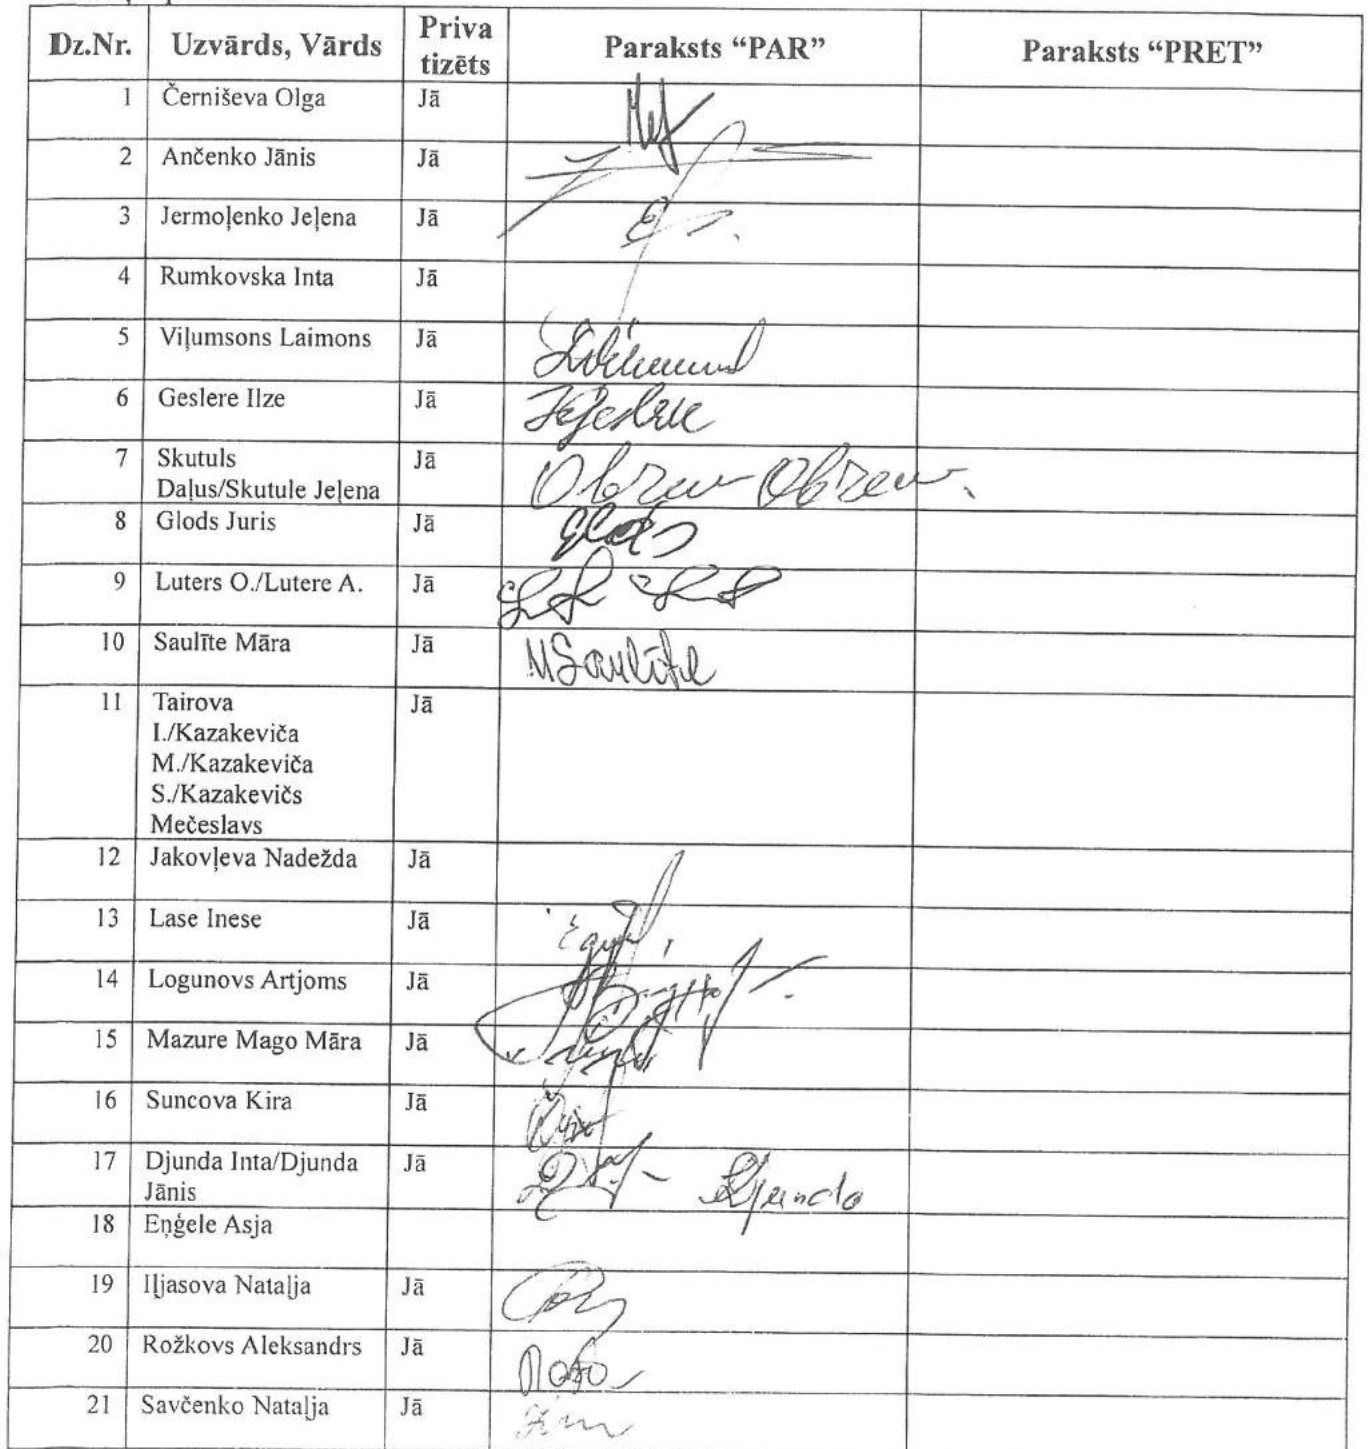 Dz.Nr. Uzvārds, Vārds Priva Paraksts “PAR” Paraksts “PRET”
tizēts
1 Černiševa Olga Jā
2 Ančenko Jānis Jā
3 Jermoļenko Jeļena Jā
4 Rumkovska Inta Jā
5 Viļumsons Laimons Jā
6 Geslere Ilze Jā
7 Skutuls Jā
Daļus/Skutule Jeļena
8 Glods Juris Jā
9 Luters O./Lutere A. Jā
10 Saulīte Māra Jā MSaulīte
11 Tairova Jā
I./Kazakeviča
M./Kazakeviča
S./Kazakevičs
Mečeslavs
12 Jakovļeva Nadežda Jā
13 Lase Inese Jā
14 Logunovs Artjoms Jā
15 Mazure Mago Māra Jā
16 Suncova Kira Jā
17 Djunda Inta/Djunda Jā Djunda
Jānis
18 Eņģele Asja
19 Iļjasova Nataļja Jā
20 Rožkovs Aleksandrs Jā
21 Savčenko Nataļja Jā